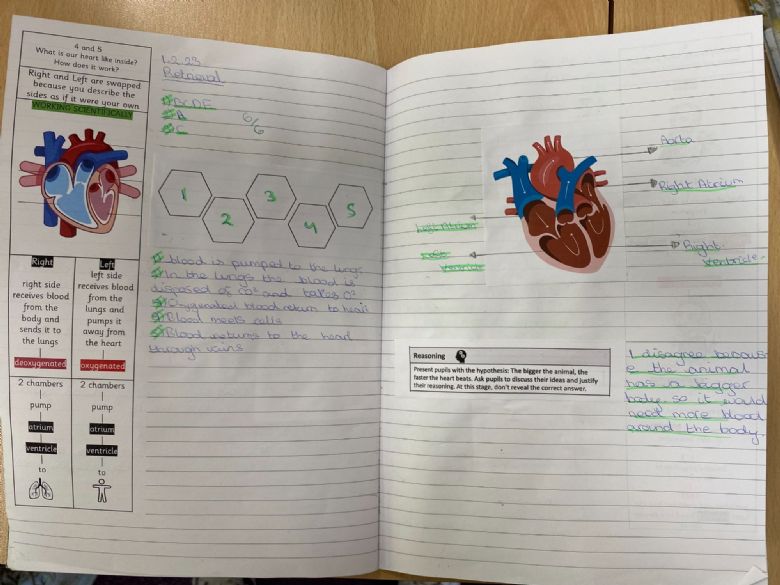 4 and 5
What is our heart like inside?
How does it work?
Right and Left are swapped
because you describe the
sides as if it were your own
WORKING SCIENTIFICALLY
Right
right side
receives blood
from the
body and
sends it to
the lungs
deoxygenated
2 chambers
pump
atrium
ventricle
to
Left
left side
receives blood
from the
lungs and
pumps it
away from
the heart
oxygenated
2 chambers
pump
atrium
ventricle
to
1.2.23
Retrieval
1) BCDF
2) A
3) C
6/6
1
2
3
4
5
1) blood is pumped to the lungs
2) In the lungs the blood is
disposed of CO² and takes O²
3) Oxygenated blood return to heart
4) Blood meets cells
5) Blood returns to the heart
through viens
Aorta
Right Atrium
Right
ventricle
Left Atrium
Left
ventricle
Reasoning
Present pupils with the hypothesis: The bigger the animal, the
faster the heart beats. Ask pupils to discuss their ideas and justify
their reasoning. At this stage, don't reveal the correct answer.
I disagree becaus
e the animal
has a bigger
body so it would
need more blood
around the body.